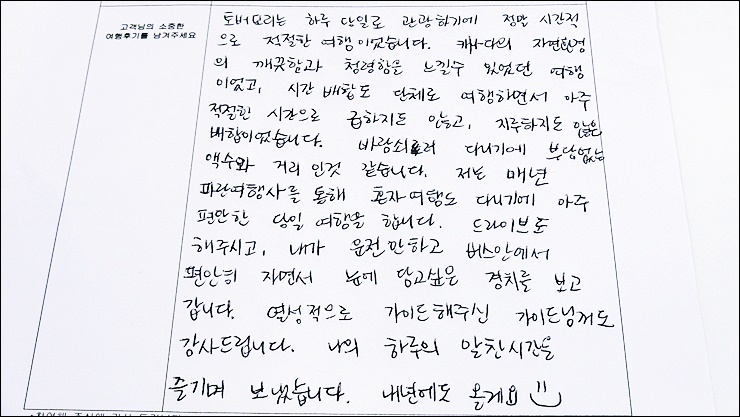 고객님의 소중한
여행후기를 남겨주세요
토버모리는 하루 당일로 관광하기에 정말 시간적
으로 적절한 여행이었습니다. 캐나다의 자연환경
의 깨끗함과 청량함을 느낄수 있었던 여행
이었고, 시간 배합도 단체로 여행하면서 아주
적절한 시간으로 급하지도 않고, 지루하지도 않은
배합이었습니다. 바람쇠러 다니기에 부담없는
액수와 거리 인것 같습니다. 저는 매년
파란여행사를 통해 혼자여행도 다니기에 아주
편안한 당일 여행을 합니다. 드라이브도
해주시고, 내가 운전안하고 버스안에서
편안히 자면서 눈에 담고싶은 경치를 보고
갑니다. 열성적으로 가이드해주신 가이드님께도
감사드립니다. 나의 하루의 알찬시간을
즐기며 보냈습니다. 내년에도 올게요